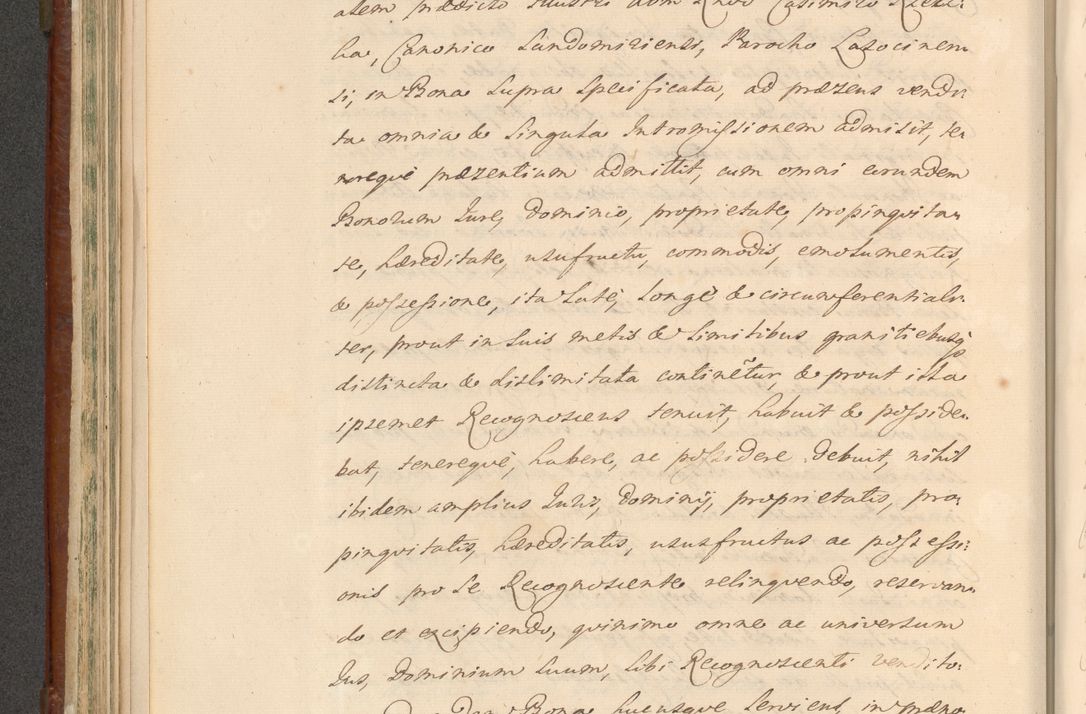 atem prædicto Illustri adm Rndo Casimiro
ha, Canonico Sandomiriensi, Parocho Lasocinen
si, in Bona supra specificata, ad præzens vendi:
ta omnia & singula Intromissionem admisit, te
noreque præzentium admittit, cum omni eorundem
Bonorum Jure, Dominio, proprietate, propinqvita
te, hæreditate, usufructu, commodis, emolumentis,
& possessione, ita Laté, Longé & circumferentiali:
ter, prout in suis metis & Limitibus granitiebusq́
distincta & dislimitata continẽtur, & prout ista
ipsemet Recognoscens tenuit, habuit & posside:
bat, tenereque, habere, ac possidere debuit, nihil
ibidem amplius Juris, Dominij, proprietatis, pro:
pinqvitatis, hæreditatis, ususfructus ac possessi:
onis pro se Recognoscente relinqvendo, reservan
do et excipiendo, qvinimo omne ac universum
Jus, Dominium suum, sibi Recognoscenti vendito:
Bona hucusque serviens, in præno